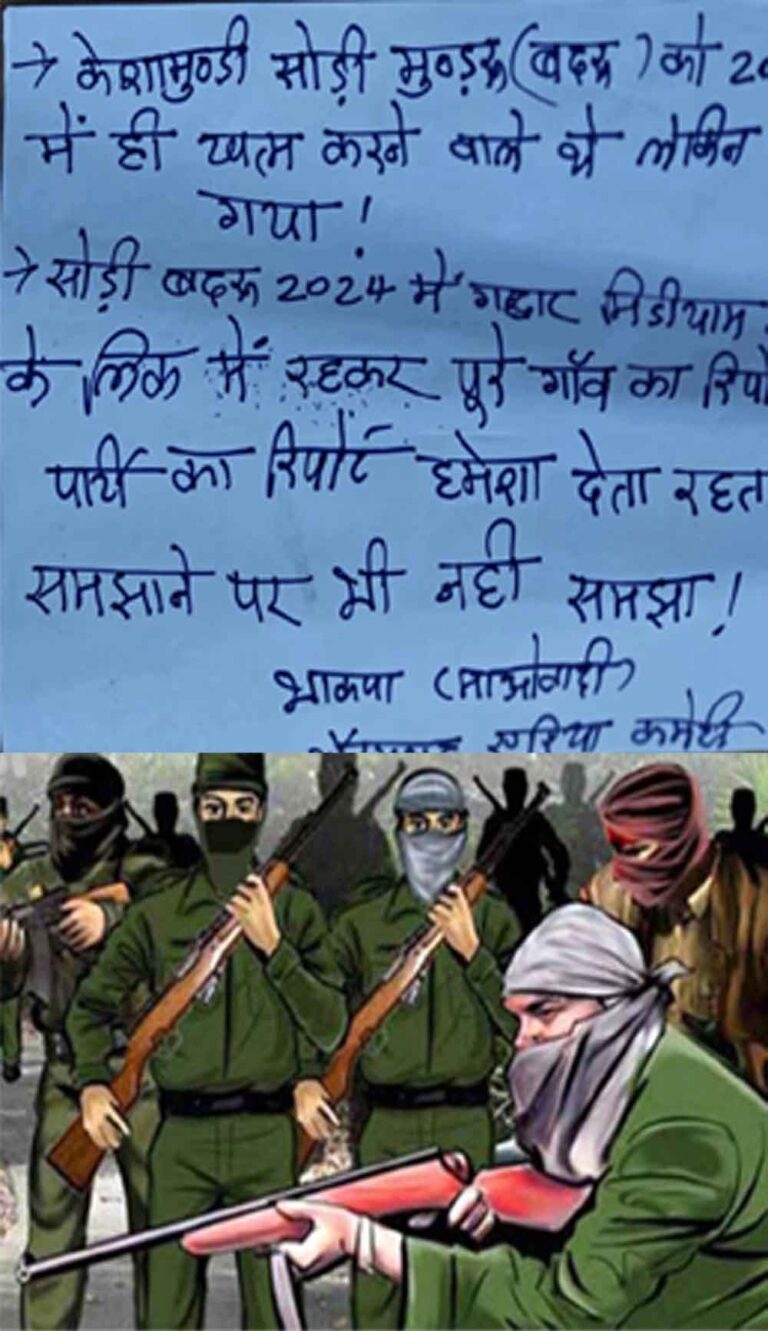 → केशामुण्डी सोड़ी मुण्ड़रू (बदरू) को 20
में ही खत्म करने वाले थे लेकिन
गया!
→ सोड़ी बदरू 2024 में गद्दार मिडीयाम
के लिंक में रहकर पूरे गाँव का रिपो
पार्टी का रिपोर्ट हमेशा देता रहत
समझाने पर भी नही समझा!
भाकपा (माओवादी)
एरिया कमेटी